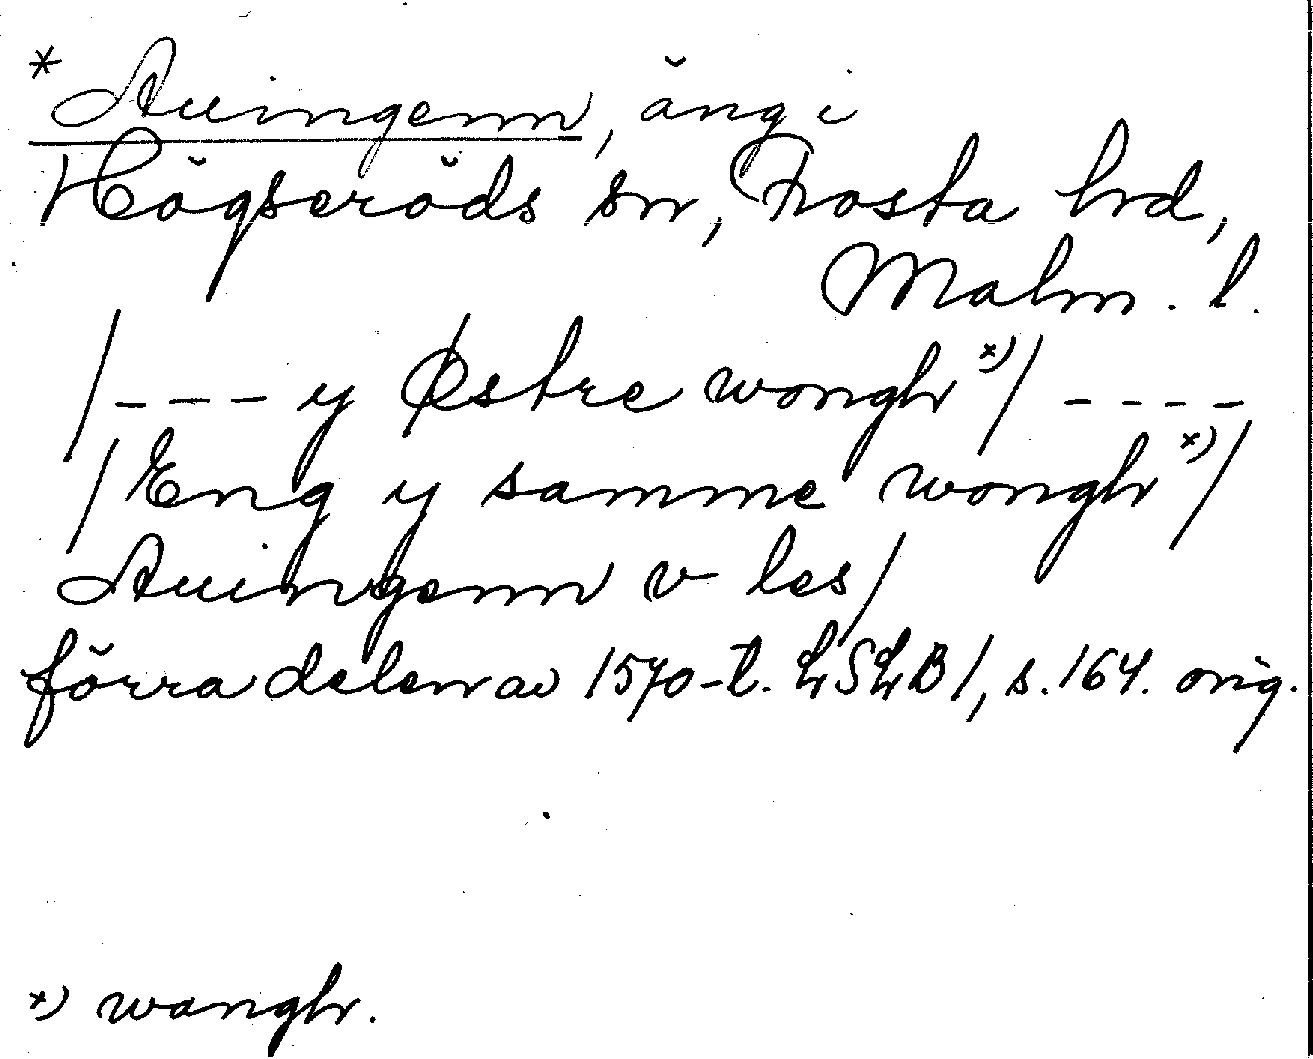 *Auingenn, äng i
Högseröds sn, Frosta hrd,
Malm. l.
/---- y Østre wongh *)/ ----
/Eng y samme wongh *)/
Auingenn v les/
förra delen av 1570-t. LSLB I, s. 164. orig.
*) wangh.